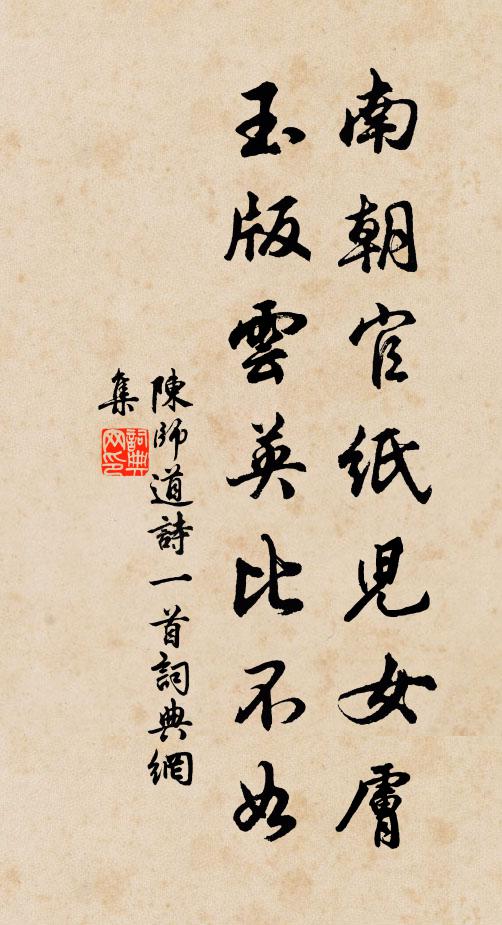 南朝官紙兒女膚
玉版雲英比不如
陳師道詩一首詞典網
集
詞典
网印